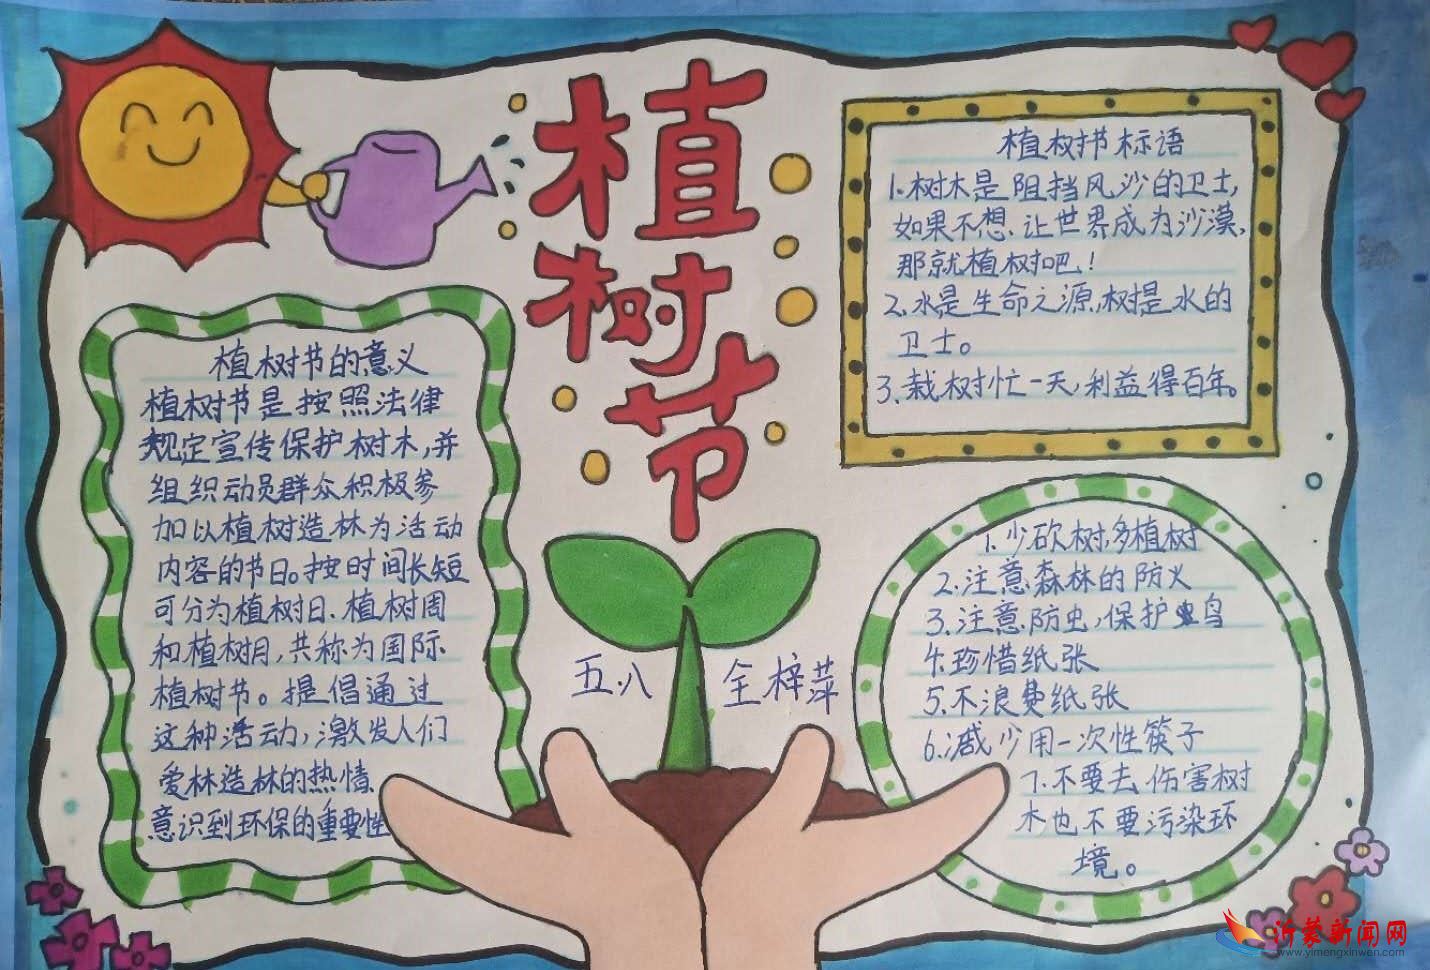 植
树
节
植树节的意义
植树节是按照法律
规定宣传保护树木,并
组织动员群众积极参
加以植树造林为活动
内容的节日。按时间长短
可分为植树日、植树周
和植树月,共称为国际
植树节。提倡通过
这种活动,激发人们
爱林造林的热情、
意识到环保的重要性
植树节标语
1、树木是阻挡风沙的卫士,
如果不想、让世界成为沙漠,
那就植树吧!
2、水是生命之源,树是水的
卫士。
3、栽树忙一天,利益得百年。
1、少砍树,多植树
2、注意森林的防火
3、注意防虫,保护鸟
4、珍惜纸张
5、不浪费纸张
6、减少用一次性筷子
7、不要去伤害树
木也不要污染环
境。
五、八 全梓萍
沂蒙新闻网
www.yimengxinwen.com